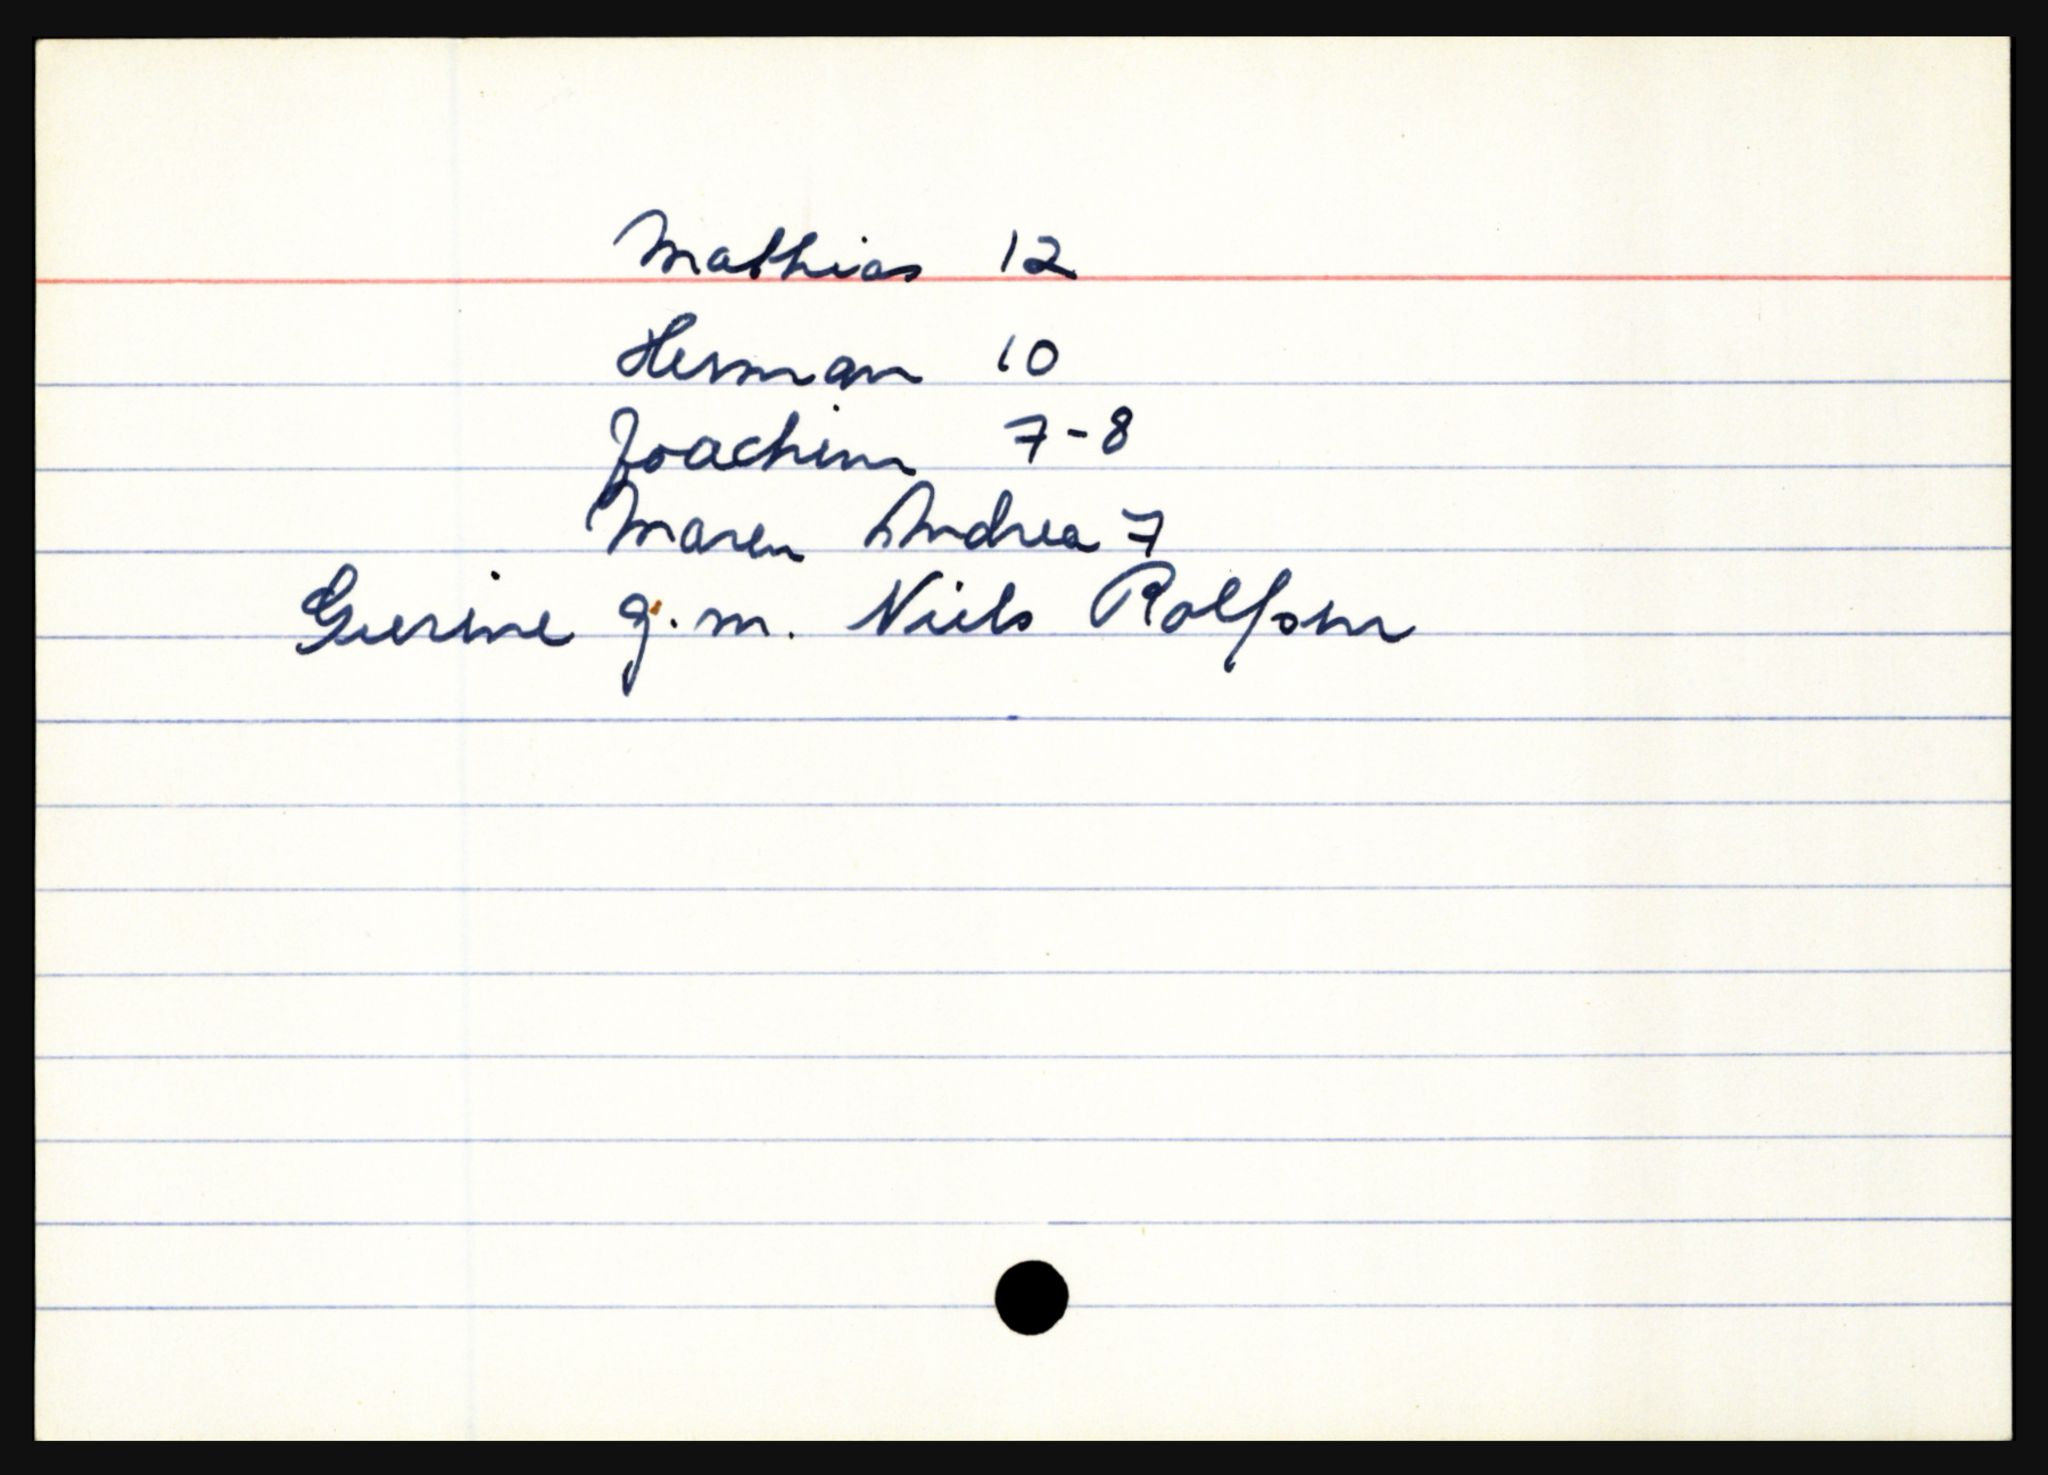 Mathias 12
Herman 10
Joachim 7-8
Maren Andrea 7
Gurine g.m. Niels Rolfsen